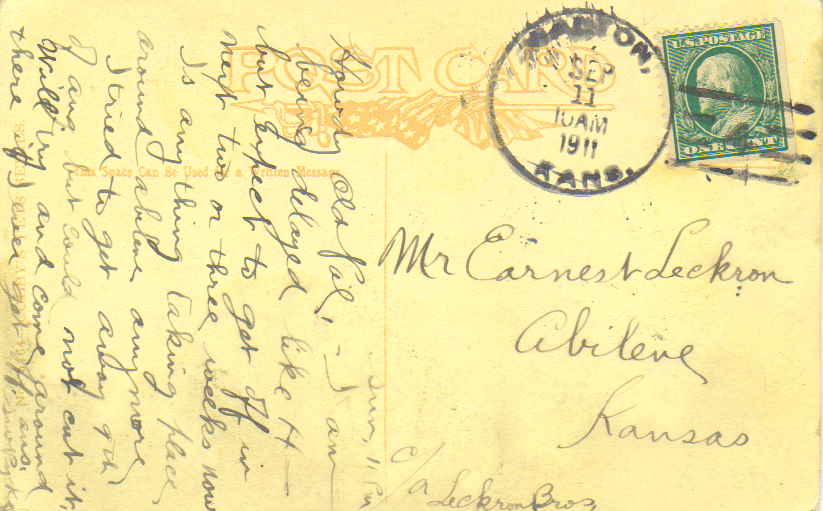 POST CARD
This Space Can Be Used for a Written Message
CANTON,
SEP
11
10AM
1911
KANS.
U.S. POSTAGE
ONE CENT
Sun, 11 P.M.
Howdy Old Pal, - I am
being delayed like H—
but expect to get off in
next two or three weeks now
Is anything taking place
around abilene anymore
I tried to get away 9th
of aug but could not cut it,
Will try and come around
there if I ever get off. ans.
Mr Earnest Leckron
Abilene
Kansas
c/a Leckron Bros,